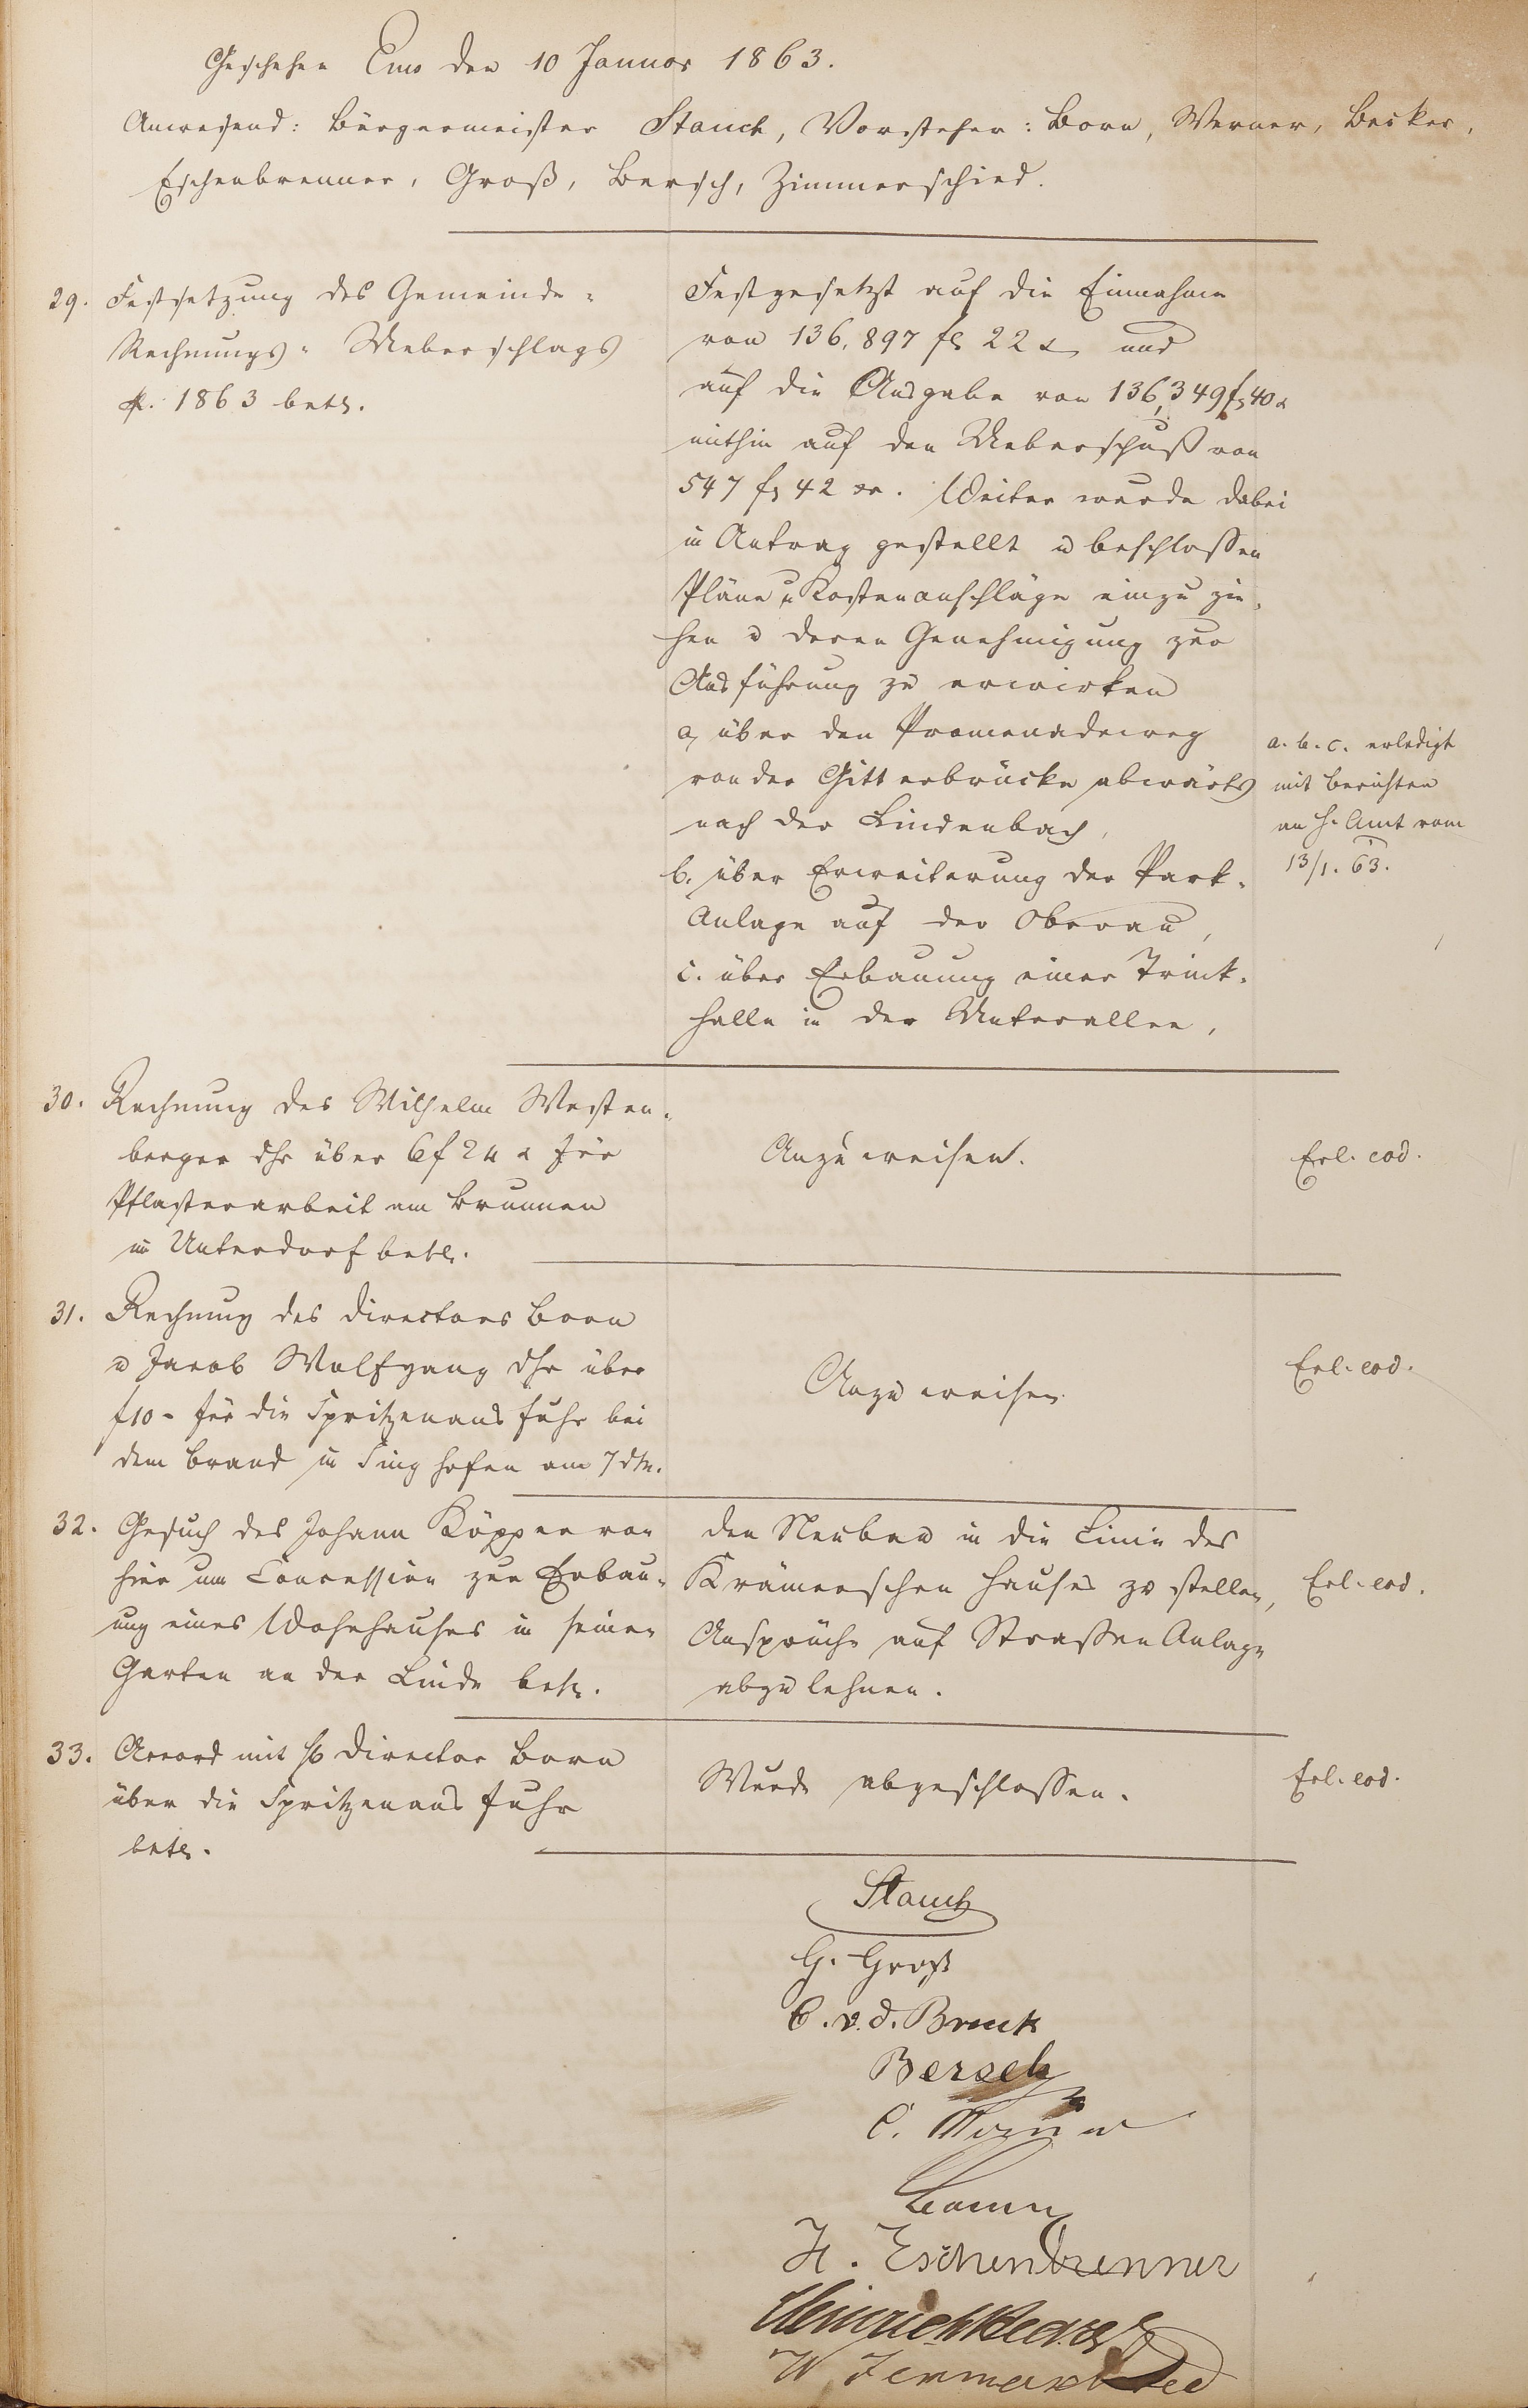 Geschehen Ems den 10 Januar 1863.
Anwesend: Bürgermeister Stauch, Vorsteher: Born, Werner, Becker,
Eschenbrenner, Groß, Bersch, Zimmerschied.
29. Festsetzung des Gemeinde-
Rechnungs-Ueberschlags
pr. 1863 betr.
Festgesetzt auf die Einnahme
von 136,897 fl 22 x und
auf die Ausgabe von 136,349 fl 40 x
mithin auf den Ueberschuß von
547 fl 42 xr. Weiter wurde dabei
in Antrag gestellt u beschlossen
Pläne u Kostenanschläge einzuzie-
hen u deren Genehmigung zur
Ausführung zu erwirken
a, über den Promenadeweg
von der Gitterbrücke abwärts
nach der Lindenbach,
b. über Erweiterung der Park-
Anlage auf der Oberau,
c. über Erbauung einer Trink-
halle in der Unterallee,
a. b. c. erledigt
mit Berichten
an H. Amt vom
13/1. 63.
30. Rechnung des Wilhelm Westen-
berger dhr über 6 f 24 x für
Pflasterarbeit am Brunnen
im Unterdorf betr.
Anzuweisen.
Erl. eod.
31. Rechnung des Directors Born
u Jacob Wolfgang dhr über
f 10 - für die Spritzenausfuhr bei
dem Brand in Singhofen am 7 ds.
Anzuweisen
Erl. eod.
32. Gesuch des Johann Köpper von
hier um Concession zur Erbau-
ung eines Wohnhauses in seinen
Garten an der Linde betr.
den Neubau in die Linie des
Krämerschen Hauses zu stellen,
Ansprüche auf Strassen Anlage
abzulehnen.
Erl. eod.
33. Accord mit Director Born
über die Spritzenausfuhr
betr.
Wurde abgeschlossen.
Erl. eod.
Stauch
G. Groß
C. v. d. Bruck
Bersch
C. Werner
Born
H. Eschenbrenner
Heinrich Becker
W Zimmerschied